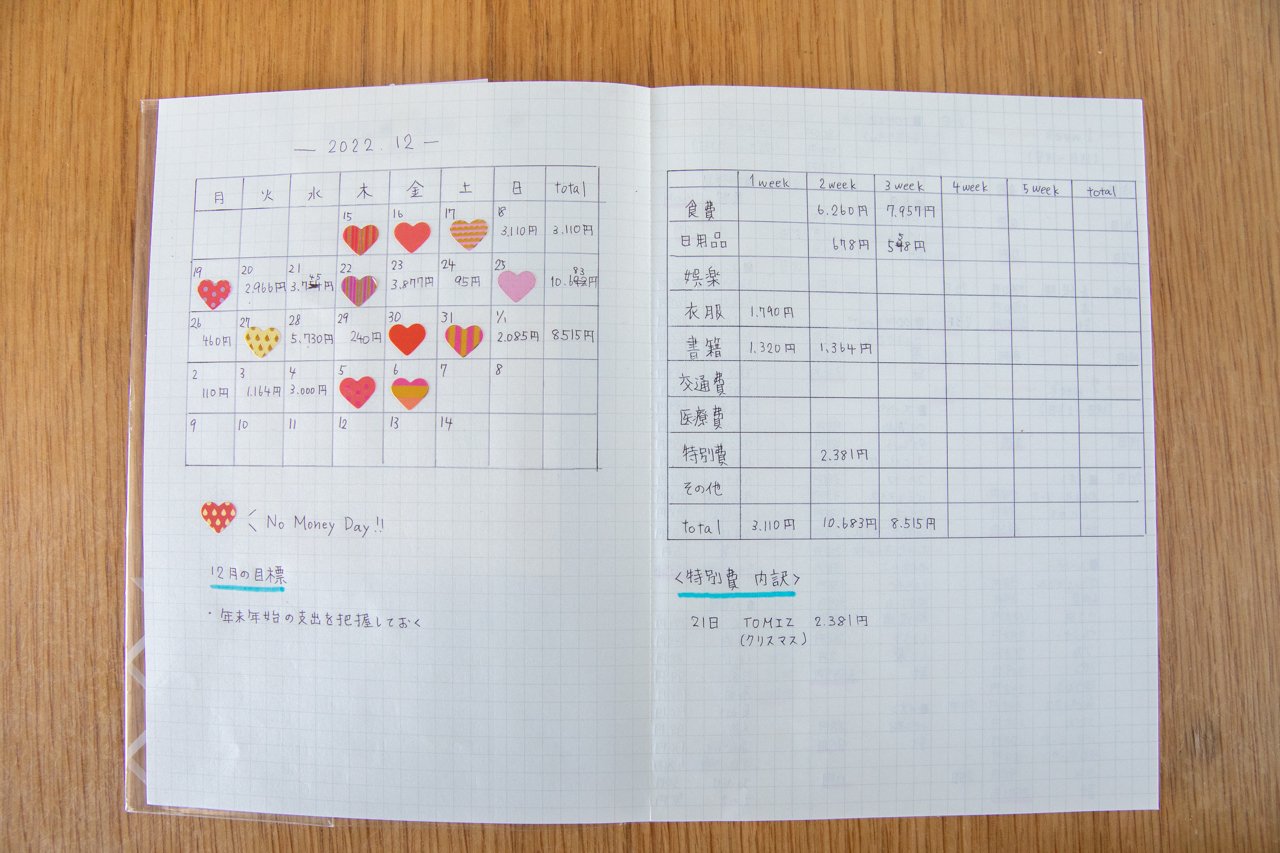 — 2022.12 —
月 火 水 木 金 土 日 total
15 16 17 18 3,110円 3,110円
19 20 2,966円 21 3.745円 22 23 3.877円 24 95円 25 10.683円
26 460円 27 28 5.730円 29 240円 30 31 1/1 2.085円 8515円
2 110円 3 1.164円 4 3.000円 5 6 7 8
9 10 11 12 13 14
No Money Day!!
12月の目標
・年末年始の支出を把握しておく
1week 2week 3week 4week 5week total
食費 6.260円 7.957円
日用品 678円 558円
娯楽
衣服 1.790円
書籍 1.320円 1,364円
交通費
医療費
特別費 2.381円
その他
total 3.110円 10.683円 8.515円
<特別費 内訳>
21日 TOMIZ 2.381円
(クリスマス)